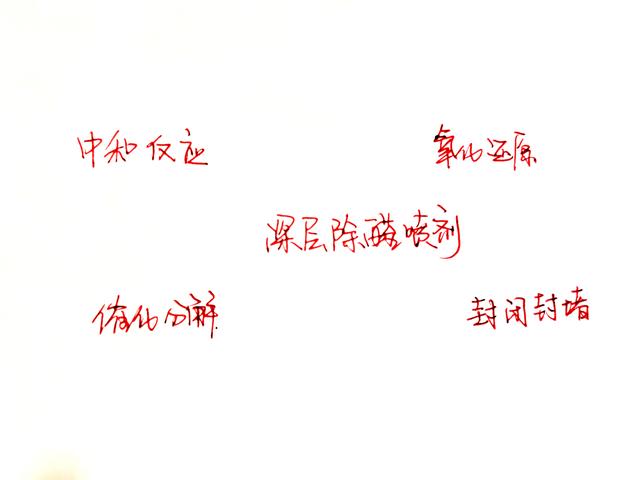 中和反应
氧化还原
深层除醛喷剂
催化分解
封闭封堵